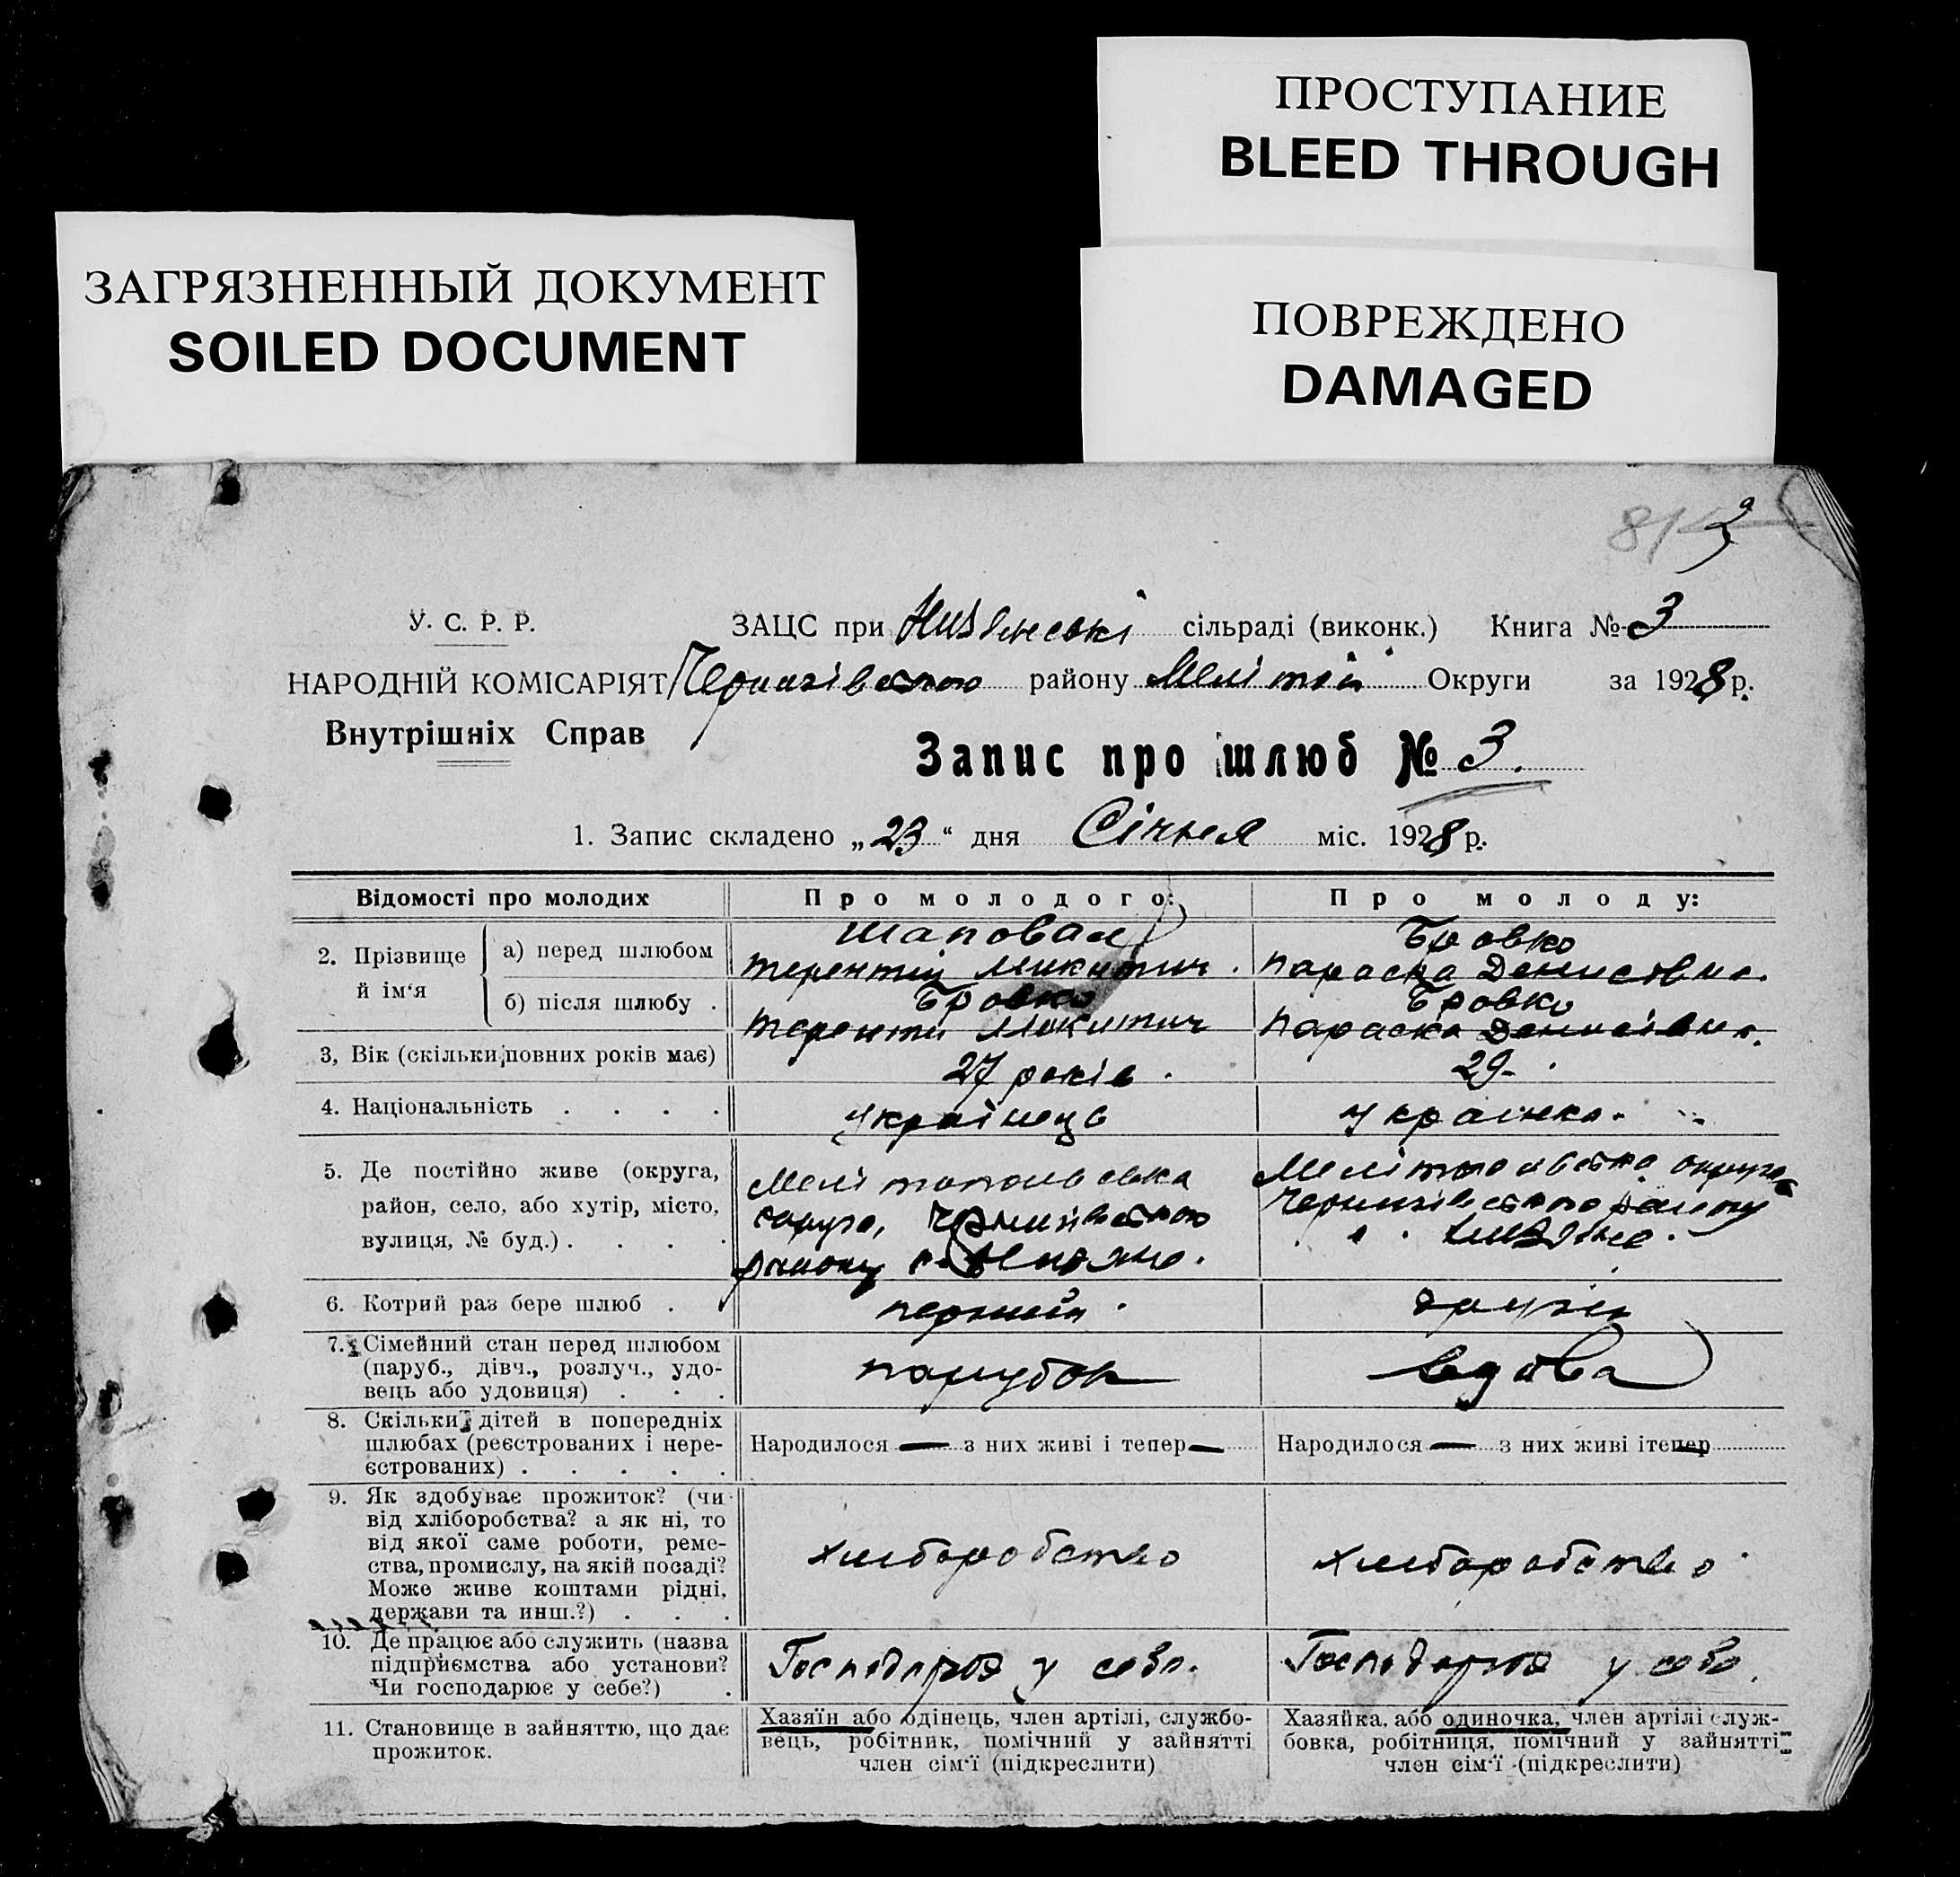 ПРОСТУПАНИЕ
BLEED THROUGH
ЗАГРЯЗНЕННЫЙ ДОКУМЕНТ
SOILED DOCUMENT
ПОВРЕЖДЕНО
DAMAGED
У. С. Р. Р.
ЗАЦС при сільраді (виконк.) Книга № 3
НАРОДНІЙ КОМІСАРІЯТ Чернигівского району Меліт ой Округи за 1928 р.
Внутрішніх Справ
Запис про шлюб № 3.
1. Запис складено „23“ дня Січня міс. 1928 р.
Відомості про молодих
Про молодого:
Про молоду:
2. Прізвище й ім‘я
а) перед шлюбом
Шаповал
Терентій Микитич.
Бровко
Параска Денисовна.
б) після шлюбу .
Бровко
Терентий Микитич
Бровко
Параска Денисівна.
3, Вік (скільки повних років має)
27 років.
29.
4. Національність . . . .
Українець
Українка.
5. Де постійно живе (округа,
район, село, або хутір, місто,
вулиця, № буд.) . . . .
Мелітопольська
округа, Чернигівского
району с.
Мелітопольска округа
Чернигівского району
6. Котрий раз бере шлюб . .
перший.
другий
7. Сімейний стан перед шлюбом
(паруб., дівч., розлуч., удо-
вець або удовиця) . . .
парубок
вдова
8. Скільки дітей в попередніх
шлюбах (реєстрованих і нере-
єстрованих) . . . . .
Народилося — з них живі і тепер —
Народилося — з них живі ітепер —
9. Як здобуває прожиток? (чи
від хліборобства? а як ні, то
від якої саме роботи, реме-
ства, промислу, на якій посаді?
Може живе коштами рідні,
держави та инш.?) . . .
хлиборобство
хлиборобство
10. Де працює або служить (назва
підприємства або установи?
Чи господарює у себе?) .
Господарює у себе.
Господарює у себе.
11. Становище в зайняттю, що дає
прожиток.
Хазяїн або одінець, член артілі, службо-
вець, робітник, помічний у зайнятті
член сім‘ї (підкреслити)
Хазяйка. або одиночка, член артілі служ-
бовка, робітниця, помічний у зайнятті
член сім‘ї (підкреслити)